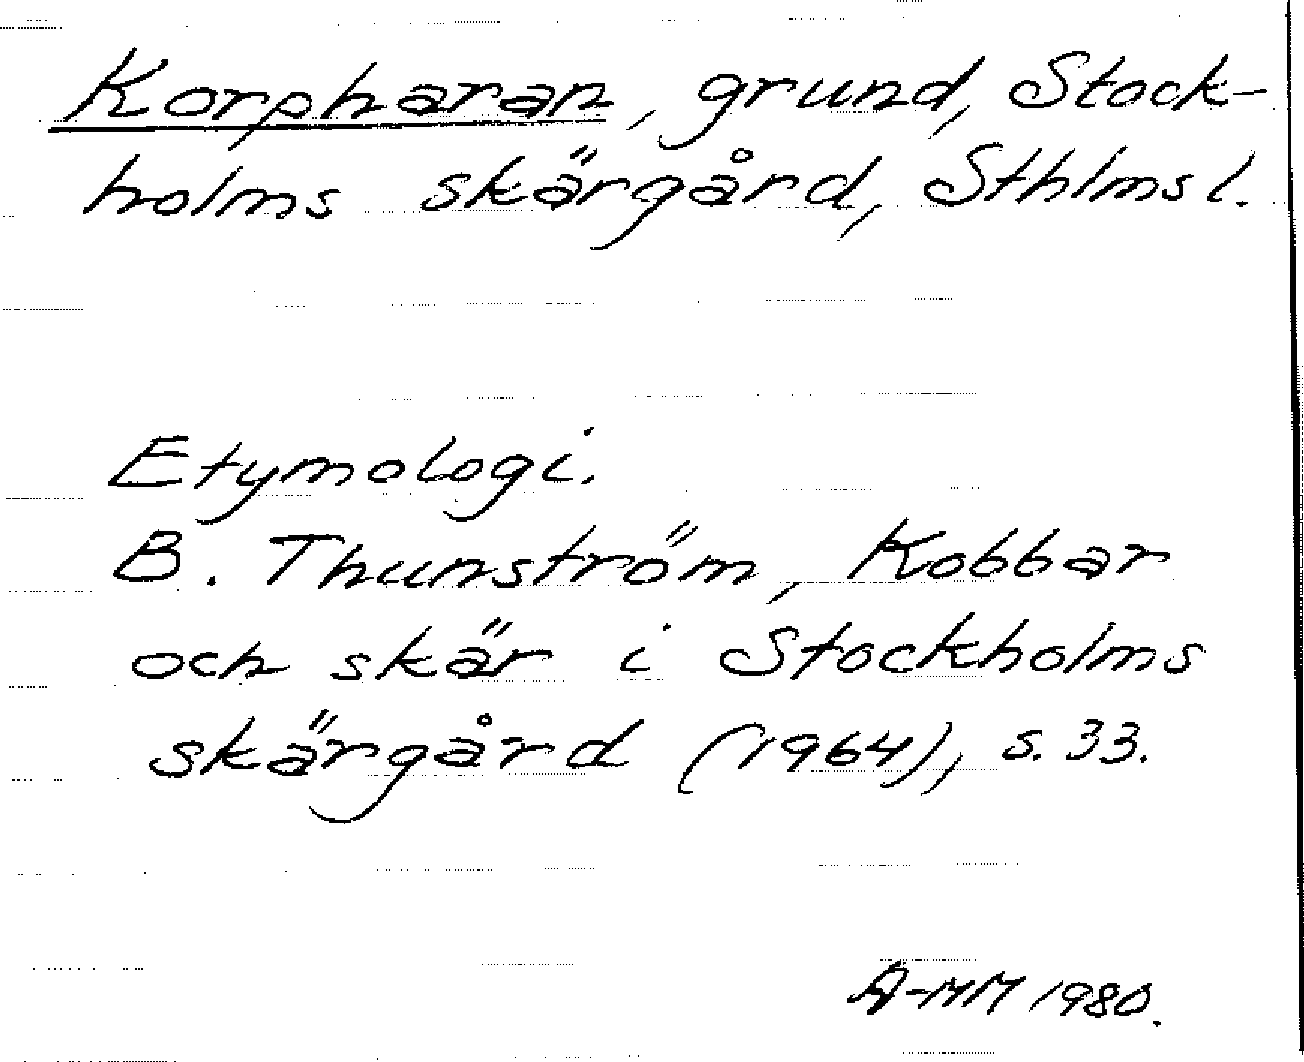 Korpharan, grund, Stock-
holms skärgård, Sthlms l.
Etymologi.
B. Thunström, Kobbar
och skär i Stockholms
skärgård (1964), s. 33.
A-MM 1980.